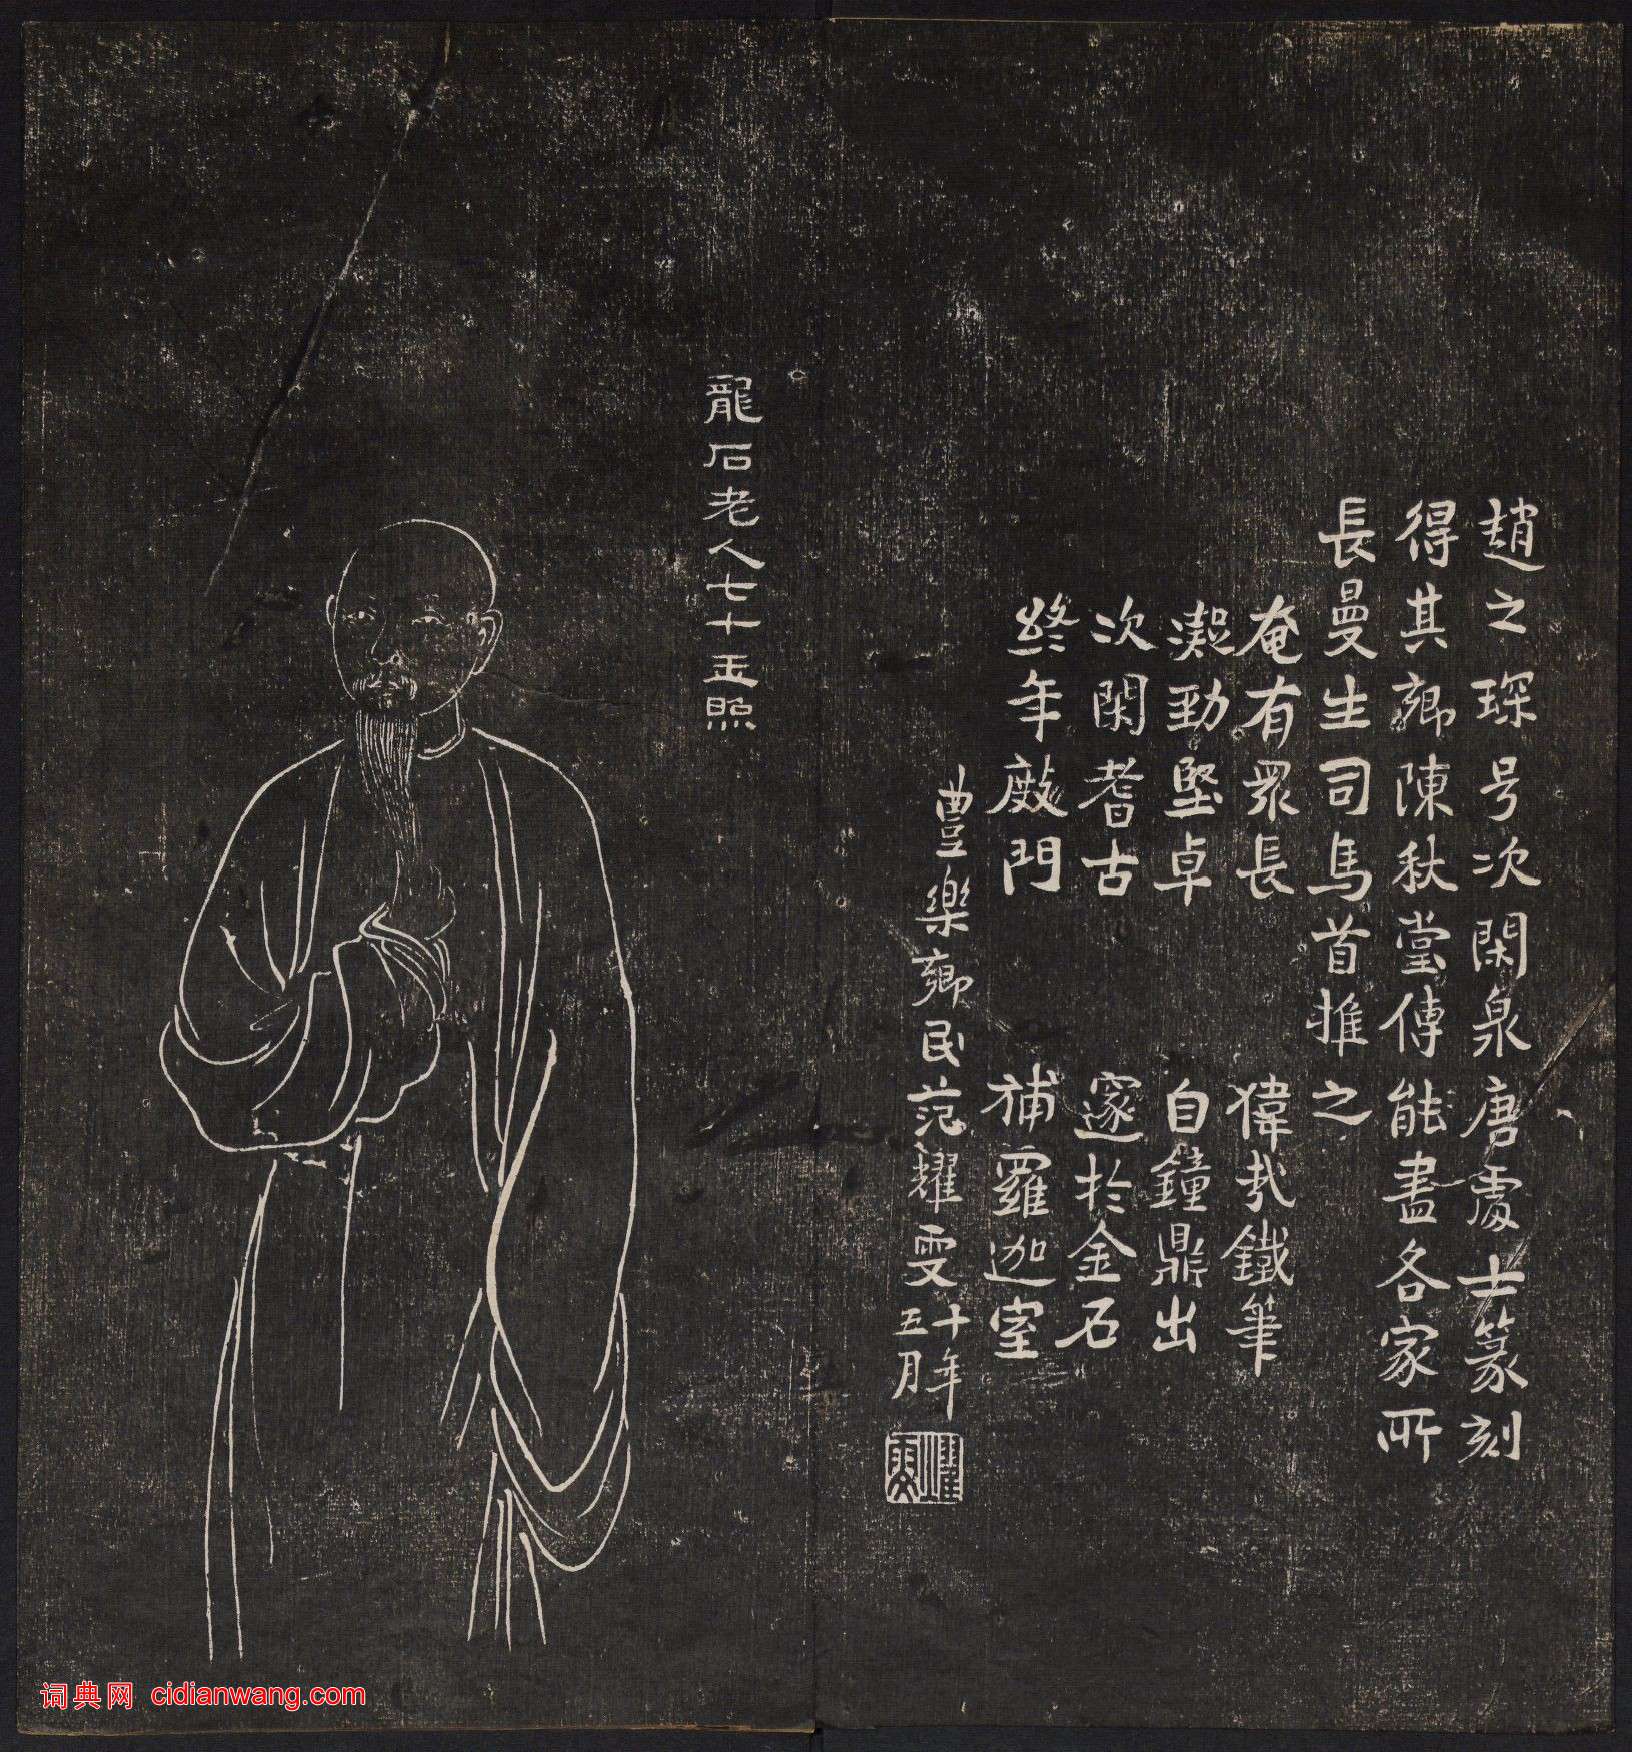 趙之琛号次閑泉唐處士篆刻
得其鄉陳秋堂傳能盡各家所
長曼生司馬首推之
奄有眾長
偉哉鐵筆
凝勁堅卓
自鐘鼎出
次閑耆古
邃於金石
終年廠門
補羅迦室
豊樂鄉民范耀雯
十年
五月
龍石老人七十玉照
词典网 cidianwang.com